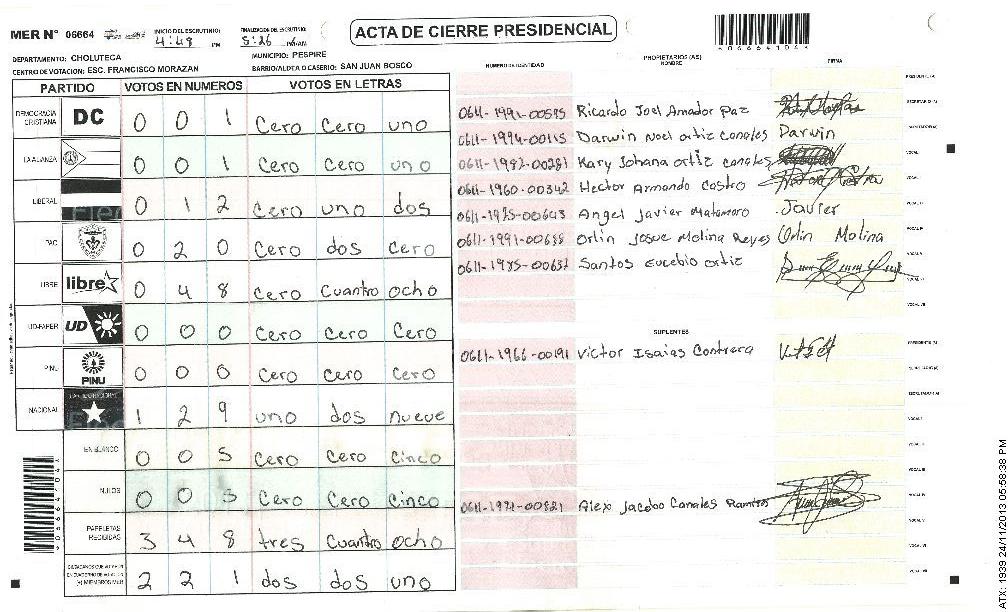 MER N° 06664 INICIO DEL ESCRUTINIO: 4:48 PM FINALIZACION DEL ESCRUTINIO: 5:26 PM/AM ACTA DE CIERRE PRESIDENCIAL
DEPARTAMENTO: CHOLUTECA MUNICIPIO: PESPIRE
CENTRO DE VOTACION: ESC. FRANCISCO MORAZAN BARRIO/ALDEA O CASERIO: SAN JUAN BOSCO
NUMERO DE IDENTIDAD PROPIETARIOS (AS) NOMBRE FIRMA
PARTIDO VOTOS EN NUMEROS VOTOS EN LETRAS
DEMOCRACIA CRISTIANA DC 0 0 1 Cero Cero uno
LA ALIANZA 0 0 1 Cero Cero uno
LIBERAL 0 1 2 Cero uno dos
PAC 0 2 0 Cero dos Cero
LIBRE libre 0 4 8 Cero Cuantro ocho
UD-FAPER UD 0 0 0 Cero Cero Cero
PINU PINU 0 0 0 Cero Cero Cero
NACIONAL 1 2 9 uno dos nueve
EN BLANCO 0 0 5 Cero Cero Cinco
NULOS 0 0 5 Cero Cero Cinco
PAPELETAS RECIBIDAS 3 4 8 tres Cuantro ocho
2 2 1 dos dos uno
0611-1991-00595 Ricardo Joel Amador Paz
0611-1994-00115 Darwin Noel ortiz Canales Darwin
0611-1987-00281 Kary Johana ortiz canales
0611-1960-00342 Hector Armando Castro
0611-1975-00643 Angel Javier Matamoro Javier
0611-1991-00688 Orlin Josue Molina Reyes Orlin Molina
0611-1985-00637 Santos Eucebio ortiz
SUPLENTES
0611-1966-00191 Victor Isaias Contrera
0611-1991-00821 Alex Jacobo Canales Ramires
ATX: 1939 24/11/2013 05:58:38 PM